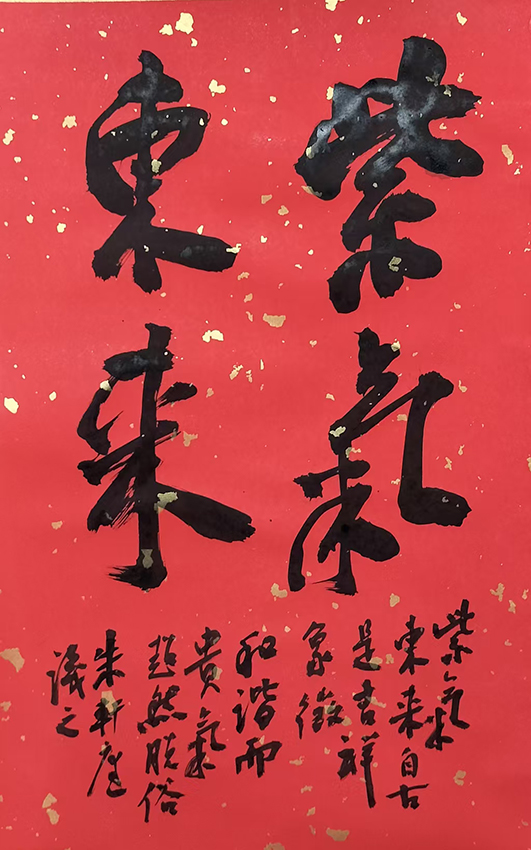 紫氣
東来
紫氣
東来自古
是吉祥
象徵
和諧而
貴氣
超然脱俗
朱軒座
議之